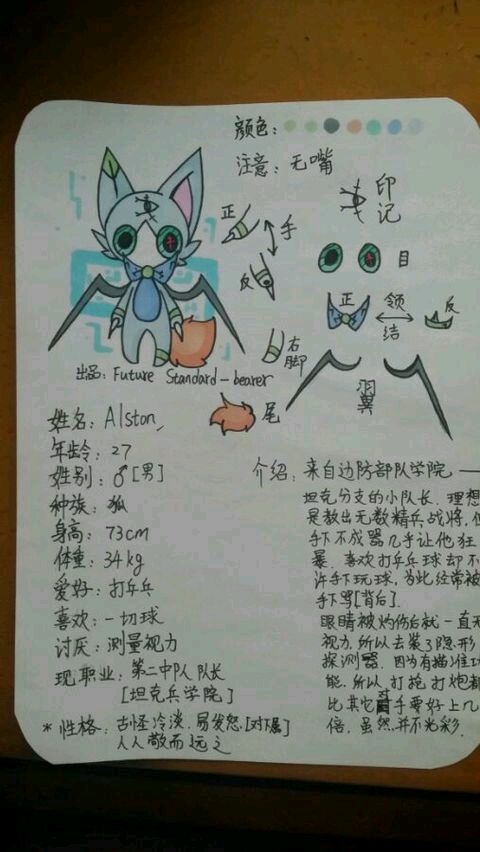 颜色:
注意: 无嘴
印记
正
手
反
目
正 领结 反
右脚
翼
出品: Future Standard-bearer
尾
姓名: Alston
年龄: 27
姓别: ♂[男]
种族: 狐
身高: 73cm
体重: 34kg
爱好: 打乒乓
喜欢: 一切球
讨厌: 测量视力
现职业: 第二中队队长
[坦克兵学院]
*性格: 古怪冷淡、易发怒.[对下属]
人人敬而远之
介绍: 来自边防部队学院——
坦克分支的小队长. 理想
是教出无数精兵战将,
手下不成器几乎让他狂
暴. 喜欢打乒乓球却不
许手下玩球, 为此经常被
手下骂[背后].
眼睛被灼伤后就一直无
视力, 所以去装了隐形
探测器. 因为有瞄准功
能, 所以, 打枪打炮都
比其它手要好上几
倍, 虽然并不光彩.